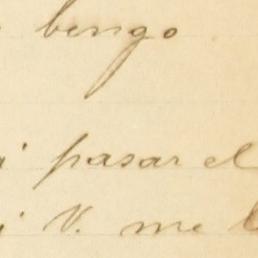 bengo
pasar el
V. me